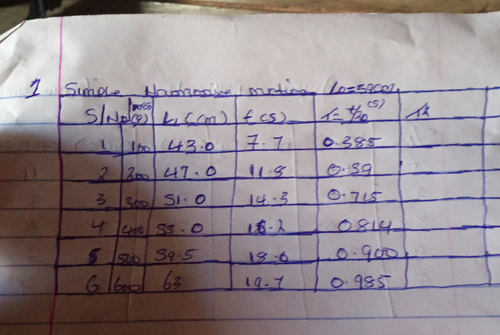 1 Simple Harmonic motion lo=39cm
S/No mass(g) L1(cm) t(s) T=t/20(s) T2
1 100 43.0 7.7 0.385
2 200 47.0 11.8 0.59
3 300 51.0 14.3 0.715
4 400 55.0 16.2 0.814
5 500 59.5 18.0 0.900
6 600 63 19.7 0.985